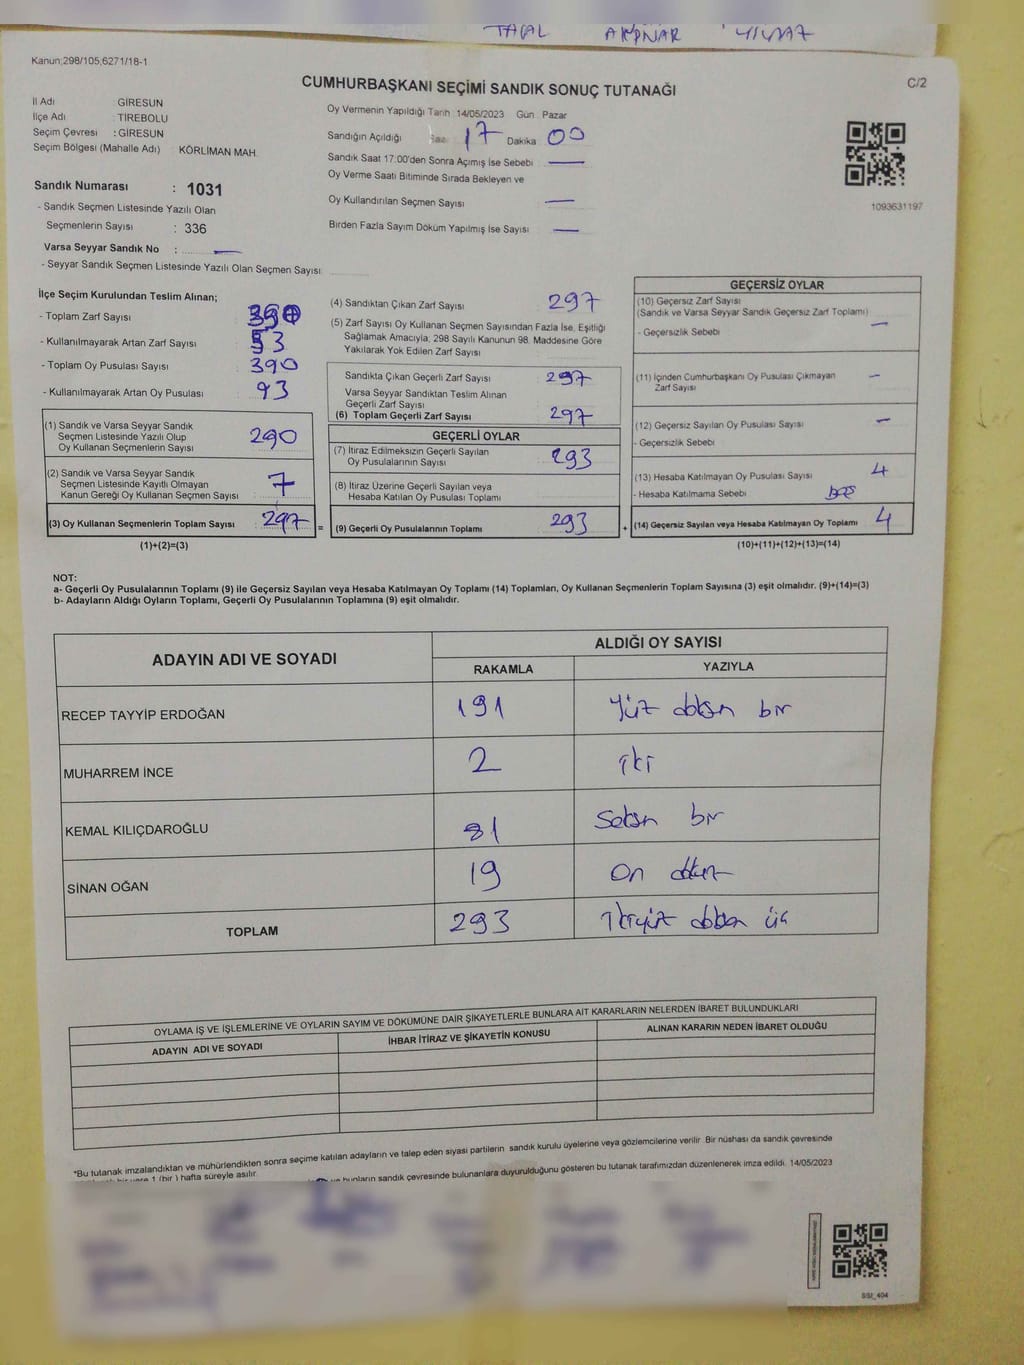 TAÇAL AKPINAR YILMAZ
Kanun;298/105,6271/18-1
CUMHURBAŞKANI SEÇİMİ SANDIK SONUÇ TUTANAĞI
C/2
İl Adı : GİRESUN
İlçe Adı : TİREBOLU
Seçim Çevresi : GİRESUN
Seçim Bölgesi (Mahalle Adı) KÖRLİMAN MAH.
Oy Vermenin Yapıldığı Tarih 14/05/2023 Gün : Pazar
Sandığın Açıldığı Saat 17 Dakika 00
Sandık Saat 17:00'den Sonra Açımış İse Sebebi —
Oy Verme Saati Bitiminde Sırada Bekleyen ve
Oy Kullandırılan Seçmen Sayısı —
Birden Fazla Sayım Döküm Yapılmış İse Sayısı —
1093631197
Sandık Numarası : 1031
- Sandık Seçmen Listesinde Yazılı Olan
Seçmenlerin Sayısı : 336
Varsa Seyyar Sandık No : —
- Seyyar Sandık Seçmen Listesinde Yazılı Olan Seçmen Sayısı:
İlçe Seçim Kurulundan Teslim Alınan;
- Toplam Zarf Sayısı 390
- Kullanılmayarak Artan Zarf Sayısı 93
- Toplam Oy Pusulası Sayısı 390
- Kullanılmayarak Artan Oy Pusulası 93
(1) Sandık ve Varsa Seyyar Sandık
Seçmen Listesinde Yazılı Olup
Oy Kullanan Seçmenlerin Sayısı 290
(2) Sandık ve Varsa Seyyar Sandık
Seçmen Listesinde Kayıtlı Olmayan
Kanun Gereği Oy Kullanan Seçmen Sayısı 7
(3) Oy Kullanan Seçmenlerin Toplam Sayısı 297 =
(1)+(2)=(3)
(4) Sandıktan Çıkan Zarf Sayısı 297
(5) Zarf Sayısı Oy Kullanan Seçmen Sayısından Fazla İse, Eşitliği
Sağlamak Amacıyla; 298 Sayılı Kanunun 98. Maddesine Göre
Yakılarak Yok Edilen Zarf Sayısı
Sandıkta Çıkan Geçerli Zarf Sayısı 297
Varsa Seyyar Sandıktan Teslim Alınan
Geçerli Zarf Sayısı
(6) Toplam Geçerli Zarf Sayısı 297
GEÇERLİ OYLAR
(7) İtiraz Edilmeksizin Geçerli Sayılan
Oy Pusulalarının Sayısı 293
(8) İtiraz Üzerine Geçerli Sayılan veya
Hesaba Katılan Oy Pusulası Toplamı
(9) Geçerli Oy Pusulalarının Toplamı 293 +
GEÇERSİZ OYLAR
(10) Geçersiz Zarf Sayısı
(Sandık ve Varsa Seyyar Sandık Geçersiz Zarf Toplamı)
- Geçersizlik Sebebi —
(11) İçinden Cumhurbaşkanı Oy Pusulası Çıkmayan —
Zarf Sayısı
(12) Geçersiz Sayılan Oy Pusulası Sayısı —
- Geçersizlik Sebebi
(13) Hesaba Katılmayan Oy Pusulası Sayısı 4
- Hesaba Katılmama Sebebi boş
(14) Geçersiz Sayılan veya Hesaba Katılmayan Oy Toplamı 4
(10)+(11)+(12)+(13)=(14)
NOT:
a- Geçerli Oy Pusulalarının Toplamı (9) ile Geçersiz Sayılan veya Hesaba Katılmayan Oy Toplamı (14) Toplamları, Oy Kullanan Seçmenlerin Toplam Sayısına (3) eşit olmalıdır. (9)+(14)=(3)
b- Adayların Aldığı Oyların Toplamı, Geçerli Oy Pusulalarının Toplamına (9) eşit olmalıdır.
ADAYIN ADI VE SOYADI
ALDIĞI OY SAYISI
RAKAMLA YAZIYLA
RECEP TAYYİP ERDOĞAN 191 yüz doksan bir
MUHARREM İNCE 2 iki
KEMAL KILIÇDAROĞLU 81 Seksen bir
SİNAN OĞAN 19 On dokuz
TOPLAM 293 ikiyüz doksan üç
OYLAMA İŞ VE İŞLEMLERİNE VE OYLARIN SAYIM VE DÖKÜMÜNE DAİR ŞİKAYETLERLE BUNLARA AİT KARARLARIN NELERDEN İBARET BULUNDUKLARI
ADAYIN ADI VE SOYADI İHBAR İTİRAZ VE ŞİKAYETİN KONUSU ALINAN KARARIN NEDEN İBARET OLDUĞU
*Bu tutanak imzalandıktan ve mühürlendikten sonra seçime katılan adayların ve talep eden siyasi partilerin sandık kurulu üyelerine veya gözlemcilerine verilir. Bir nüshası da sandık çevresinde
1 (bir ) hafta süreyle asılır.
bunların sandık çevresinde bulunanlara duyurulduğunu gösteren bu tutanak tarafımızdan düzenlenerek imza edildi. 14/05/2023
SSI_404